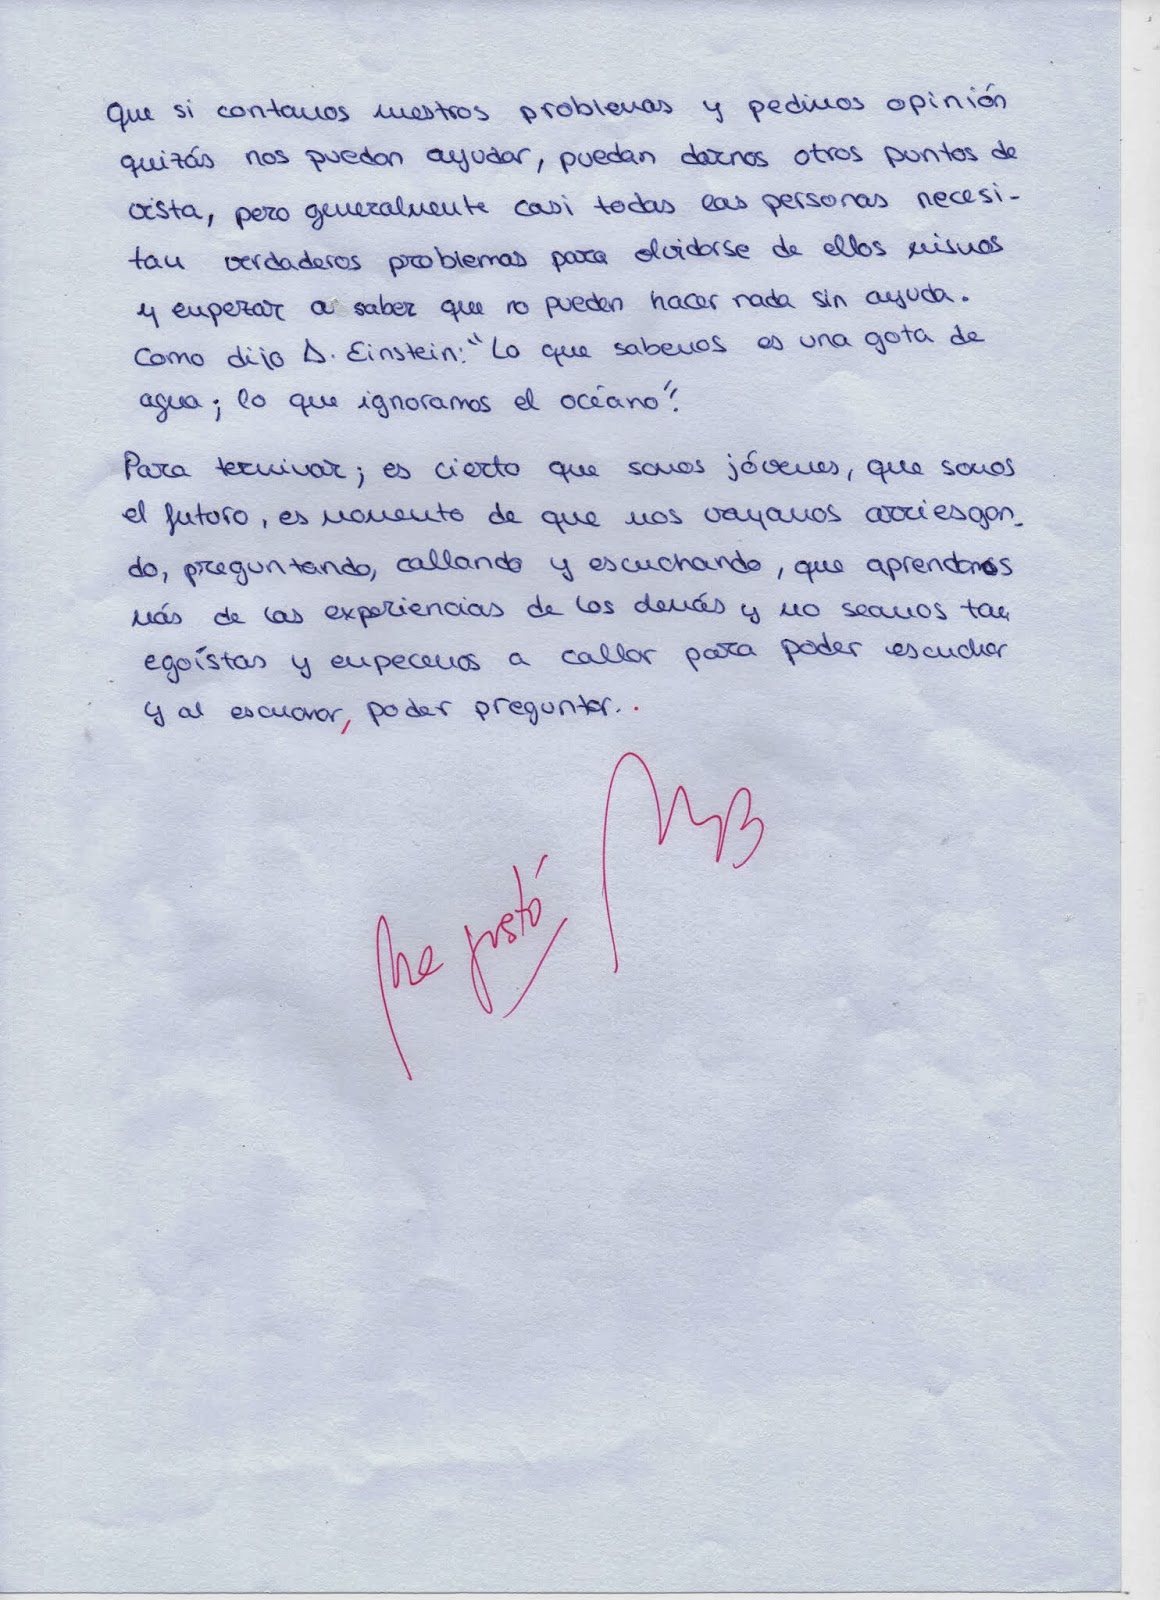 Que si contamos nuestros problemas y pedimos opinión
quizás nos puedan ayudar, puedan darnos otros puntos de
vista, pero generalmente casi todas las personas necesi-
tan verdaderos problemas para olvidarse de ellos mismos
y empezar a saber que no pueden hacer nada sin ayuda.
Como dijo A. Einstein: "Lo que sabemos es una gota de
agua; lo que ignoramos el océano".
Para terminar; es cierto que somos jóvenes, que somos
el futuro, es momento de que nos vayamos arriesgan-
do, preguntando, callando y escuchando, que aprendamos
más de las experiencias de los demás y no seamos tan
egoístas y empecemos a callar para poder escuchar
y al escuchar, poder preguntar..
Me gustó